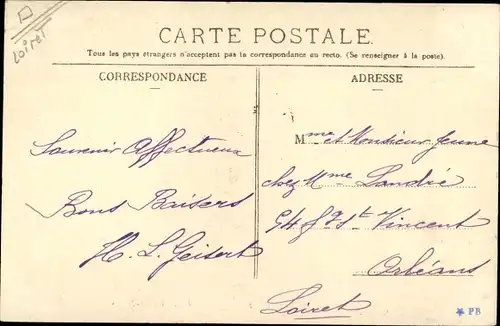 Loiret
CARTE POSTALE.
Tous les pays étrangers n'acceptent pas la correspondance au recto. (Se renseigner à la poste).
CORRESPONDANCE
ADRESSE
Souvenir Affectueux
Bons Baisers
H. L. Geisert
Mme et Monsieur Jeune
chez Mme Landré
94 Fg St Vincent
Orléans
Loiret
* PB